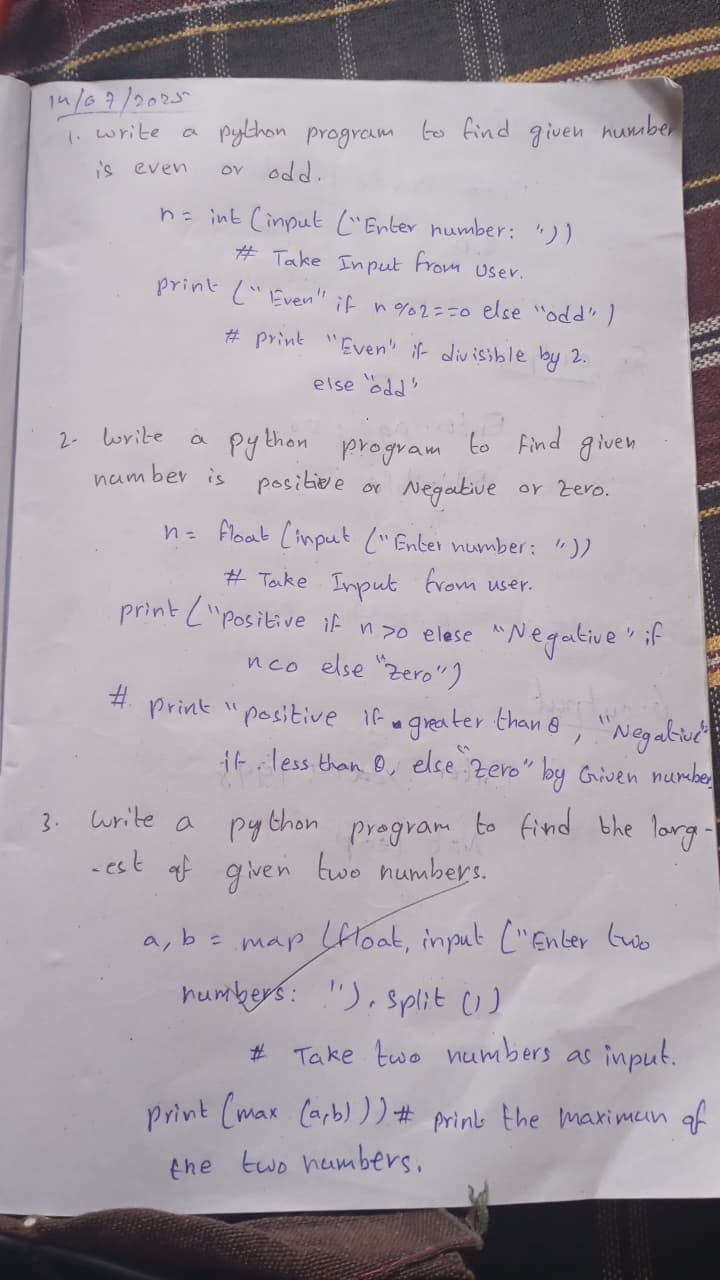 14/07/2025
1. write a python program to find given number
is even or odd.
n = int (input ("Enter number: "))
# Take Input from User.
print ("Even" if n%2==0 else "odd")
# print "Even" if divisible by 2.
else "odd"
2- write a python program to find given
number is positive or Negative or zero.
n = float (input ("Enter number: "))
# Take Input from user.
print ("positive if n>0 elese "Negative" if
n<0 else "zero")
# print "positive if greater than 0, "Negative"
if less than 0, else "zero" by Given number
3. write a python program to find the larg-
-est of given two numbers.
a, b = map (float, input ("Enter two
numbers: "). split ())
# Take two numbers as input.
print (max (a,b))) # print the maximun of
the two numbers.